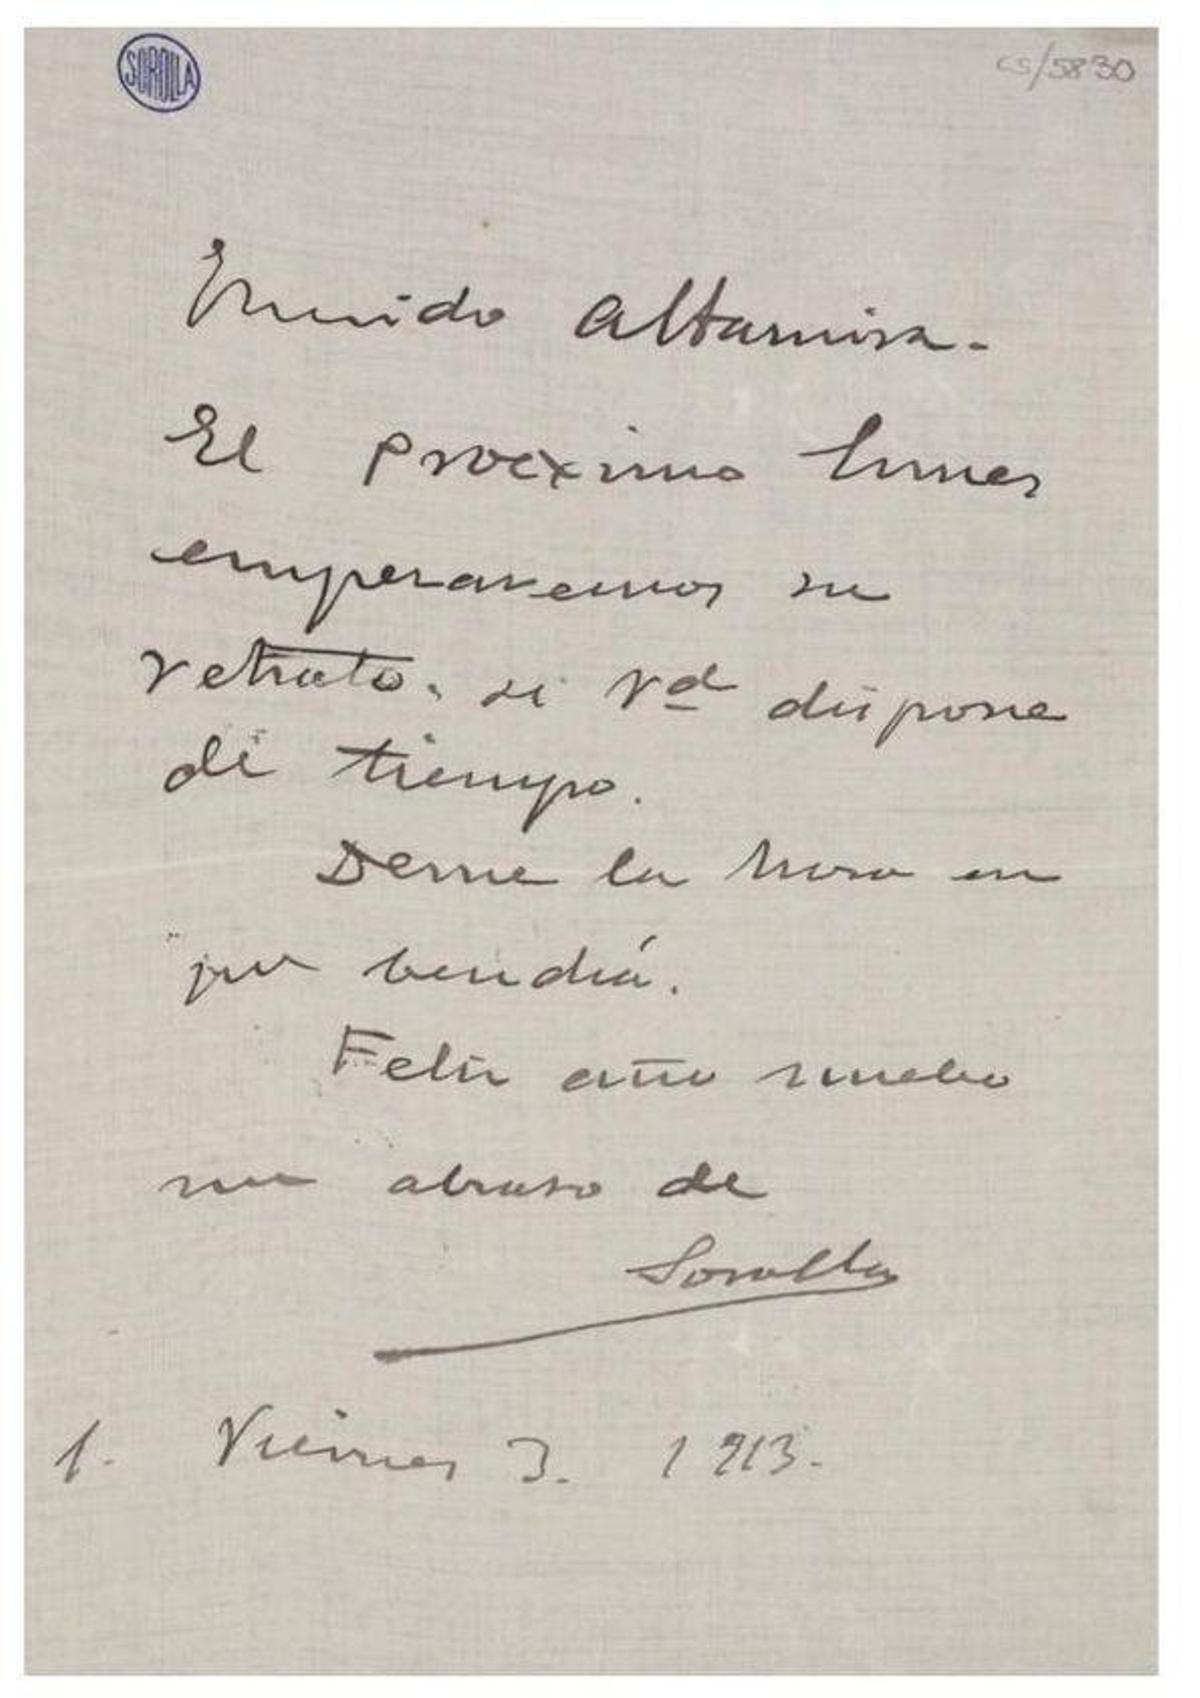 SOROLLA
CS/5830
Querido Altamira-
El proximo lunes
emperaremos su
retrato. si Vd dispone
de tiempo.
Deme la hora en
que bendrá.
Feliz año nuebo
un abraso de
Sorolla
1. Viernes 3. 1913.